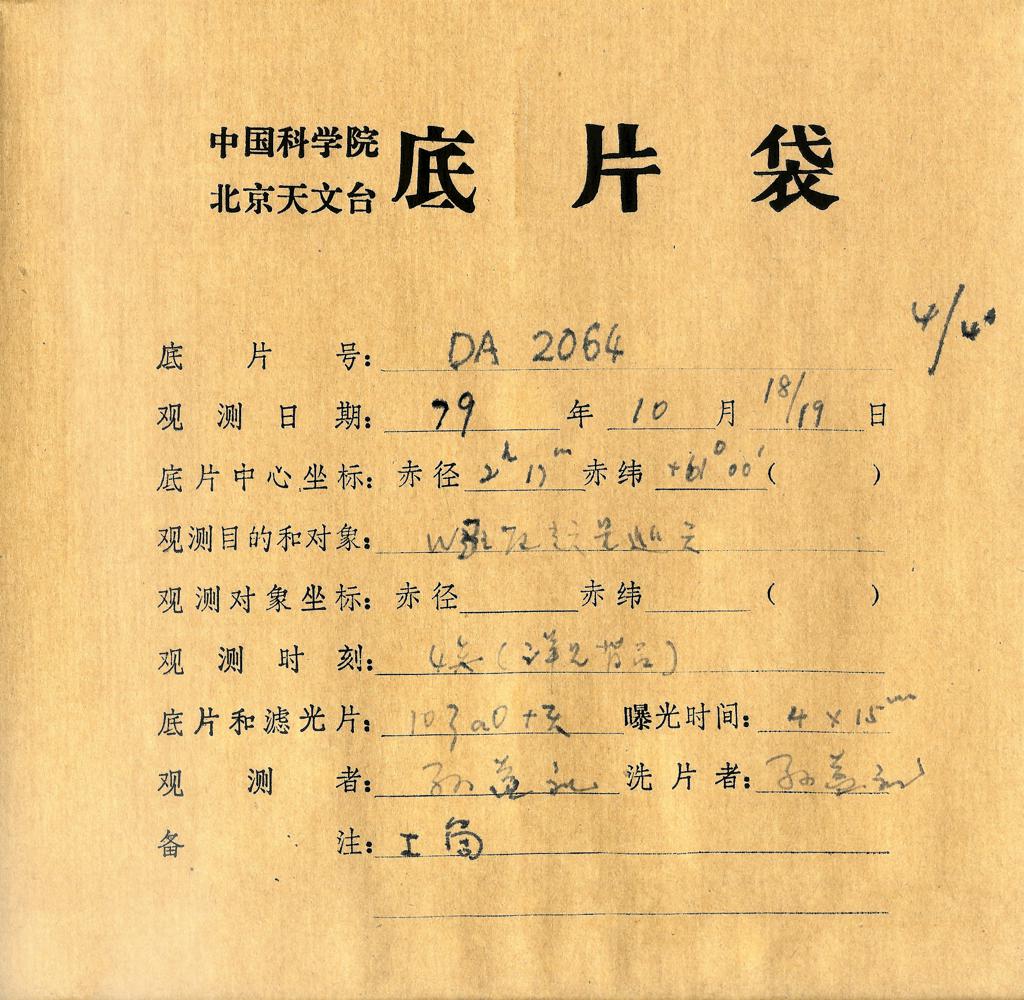 中国科学院
北京天文台
底片袋
4/4
底片号: DA 2064
观测日期: 79 年 10 月 18/19 日
底片中心坐标: 赤径 2h 17m 赤纬 +61° 00' ( )
观测目的和对象:
观测对象坐标: 赤径 赤纬 ( )
观测时刻: 4点(详见背面)
底片和滤光片: 103aO+无 曝光时间: 4×15m
观测者: 孙益礼 洗片者: 孙益礼
备注: